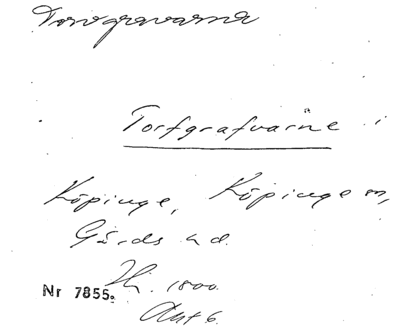 Torvgravarna
Torfgrafvarne i
Köpinge, Köpinge sn,
Gärds hd.
Hi. 1800.
Nr 7855.
Akt 6.